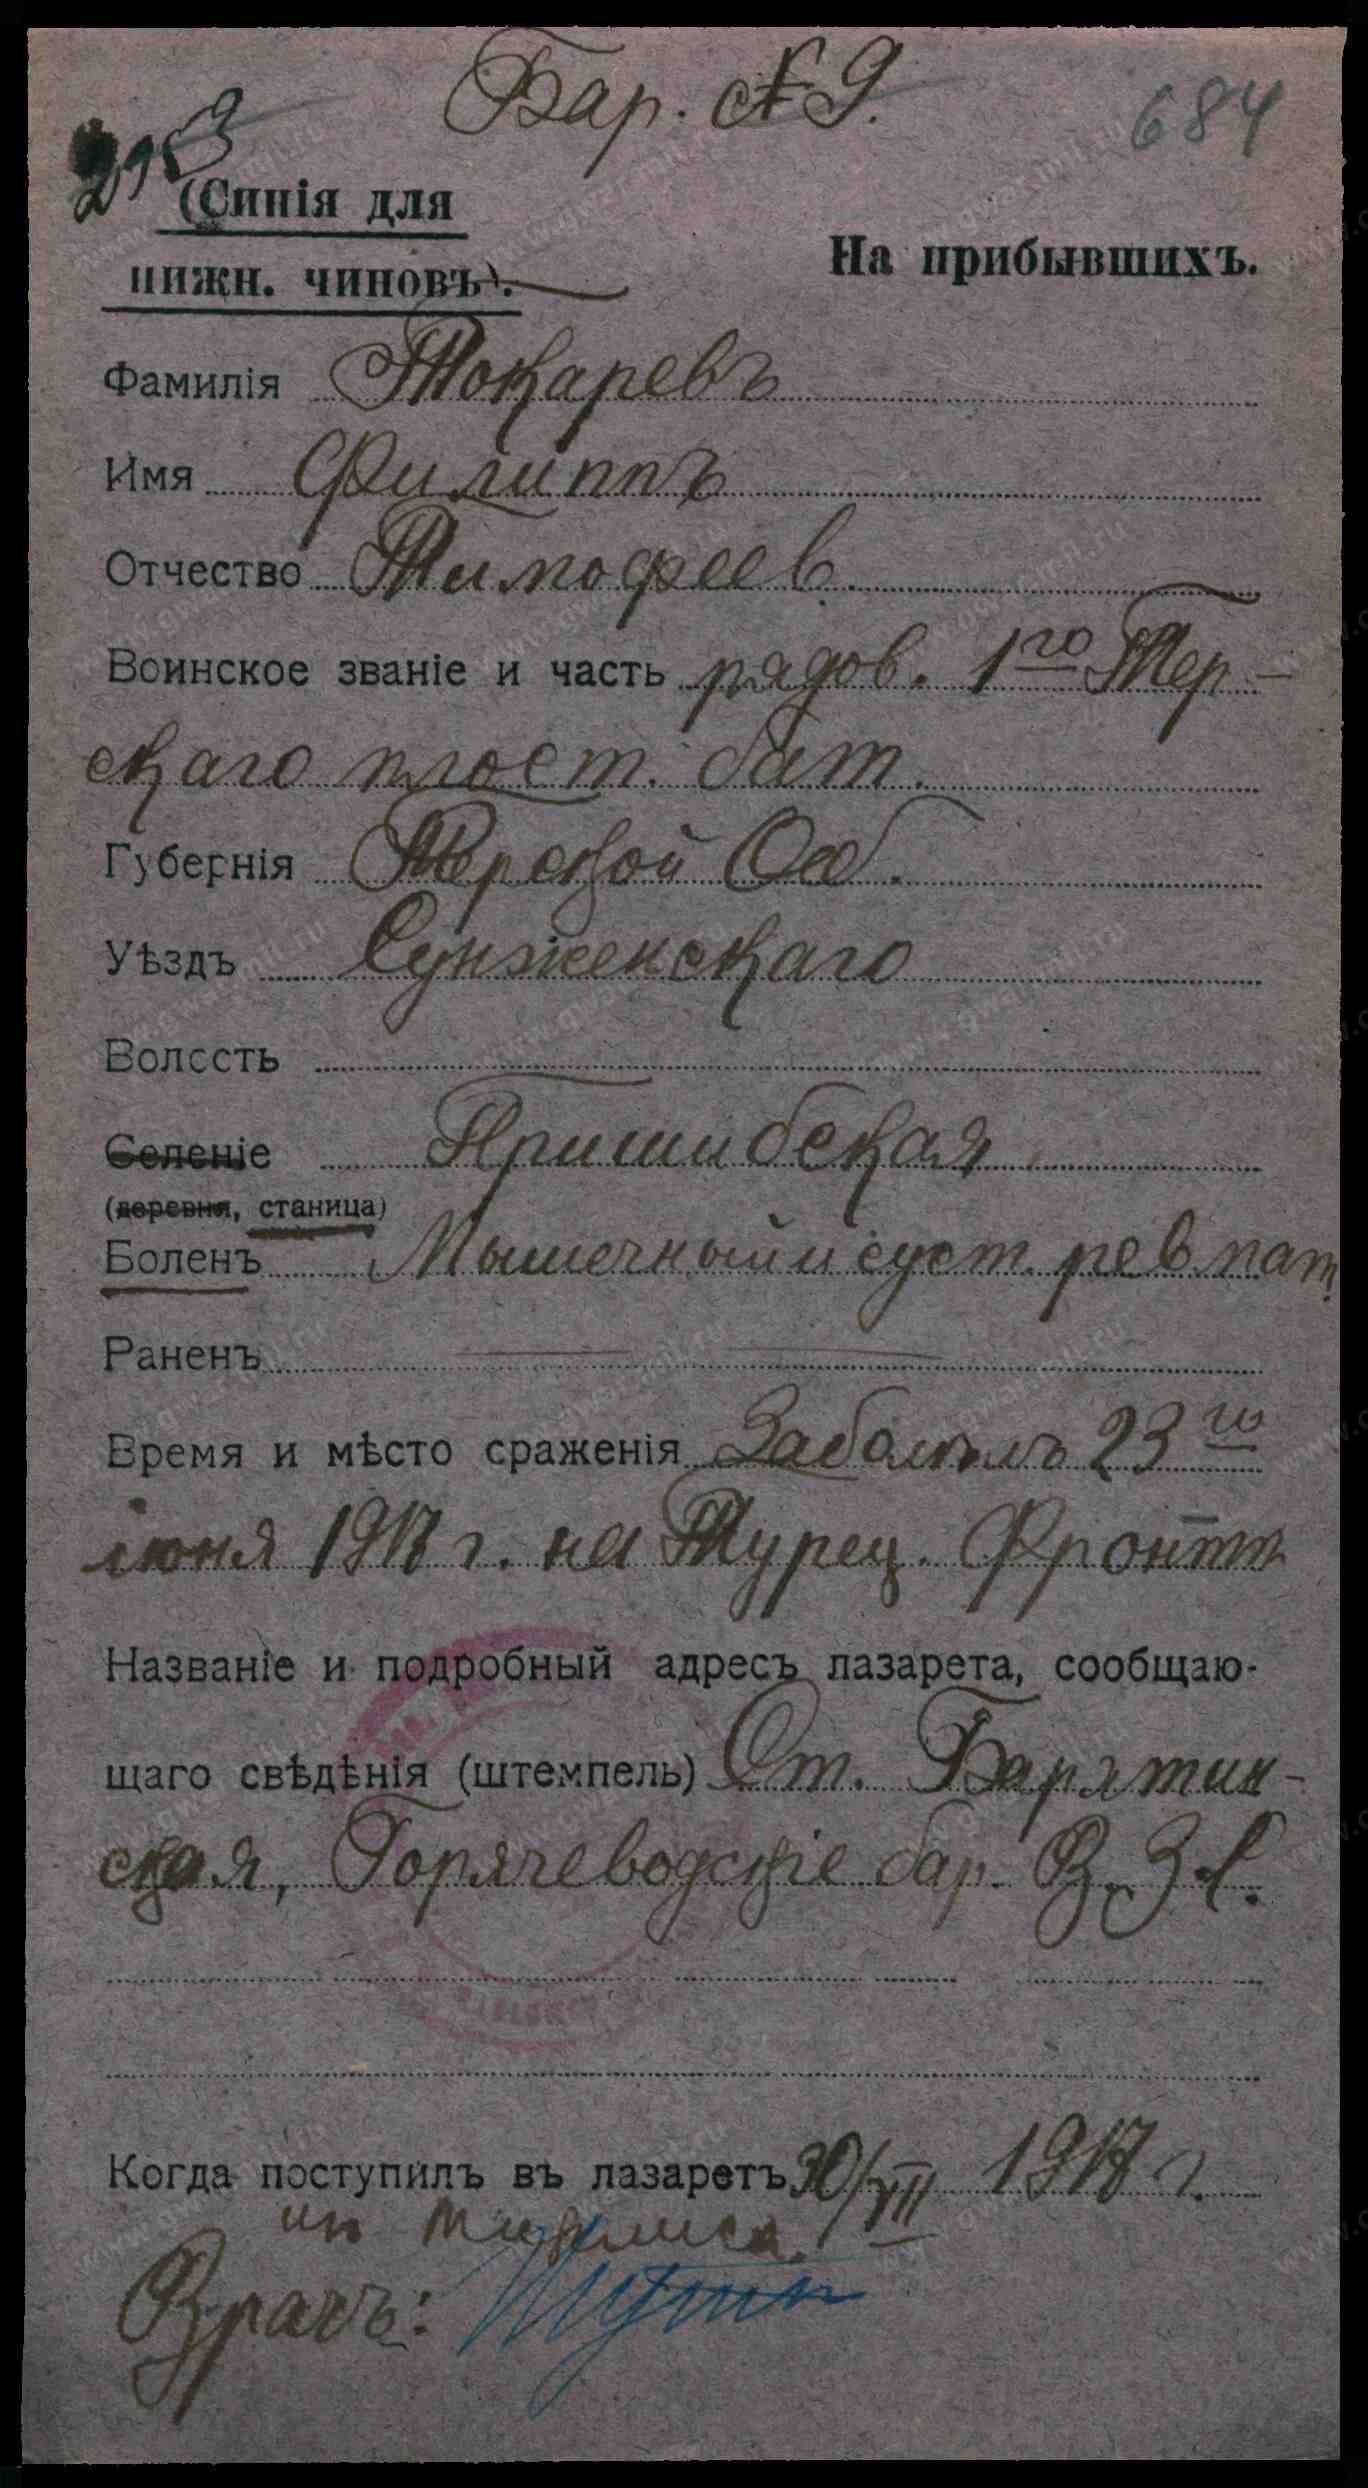 Бар. № 9.
684
(Синія для
нижн. чиновъ).
На прибывшихъ.
Фамилія Токаревъ
Имя Филиппъ
Отчество Тимофеев.
Воинское званіе и часть рядов. 1го Тер-
скаго пласт. бат.
Губернія Терской Об.
Уѣздъ Сунженскаго
Волость
Селеніе Пришибская
(деревня, станица)
Боленъ Мышечный и суст. ревмат.
Раненъ
Время и мѣсто сраженія Заболѣлъ 23го
іюня 1917 г. на Турец. Фронтѣ
Названіе и подробный адресъ лазарета, сообщаю-
щаго свѣдѣнія (штемпель) Ст. Барятин-
ская, Горячеводскіе бар. В. З. С.
Когда поступилъ въ лазаретъ 30/VII 1917 г.
из Тифлиса.
Врачъ: